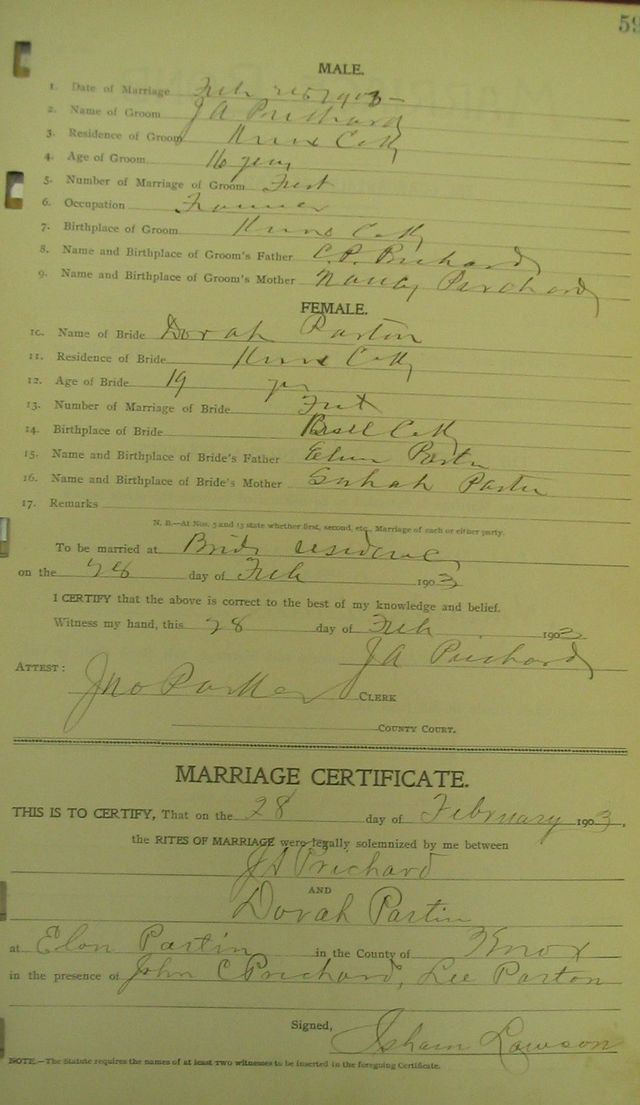 59
MALE.
1. Date of Marriage Feb 1903
2. Name of Groom J A Prichard
3. Residence of Groom Knox Co Ky
4. Age of Groom 16 years
5. Number of Marriage of Groom First
6. Occupation Farmer
7. Birthplace of Groom Knox Co Ky
8. Name and Birthplace of Groom's Father C. P. Prichard
9. Name and Birthplace of Groom's Mother Nancy Prichard
FEMALE.
10. Name of Bride Dorah Partin
11. Residence of Bride Knox Co Ky
12. Age of Bride 19 yrs
13. Number of Marriage of Bride First
14. Birthplace of Bride Bell Co Ky
15. Name and Birthplace of Bride's Father Partin
16. Name and Birthplace of Bride's Mother Sarah Partin
17. Remarks
N. B.—At Nos. 5 and 13 state whether first, second, etc., Marriage of each or either party.
To be married at Brids residence
on the 28 day of Feb 1903
I CERTIFY that the above is correct to the best of my knowledge and belief.
Witness my hand, this 28 day of Feb. 1903
J A Prichard
ATTEST:
Jno Parker CLERK
COUNTY COURT.
MARRIAGE CERTIFICATE.
THIS IS TO CERTIFY, That on the 28 day of February 1903,
the RITES OF MARRIAGE were legally solemnized by me between
J A Prichard
AND
Dorah Partin
at Elon Partin in the County of Knox
in the presence of John C Prichard, Lee Parton
Signed, Isham Lawson
NOTE.—The Statute requires the names of at least two witnesses to be inserted in the foregoing Certificate.